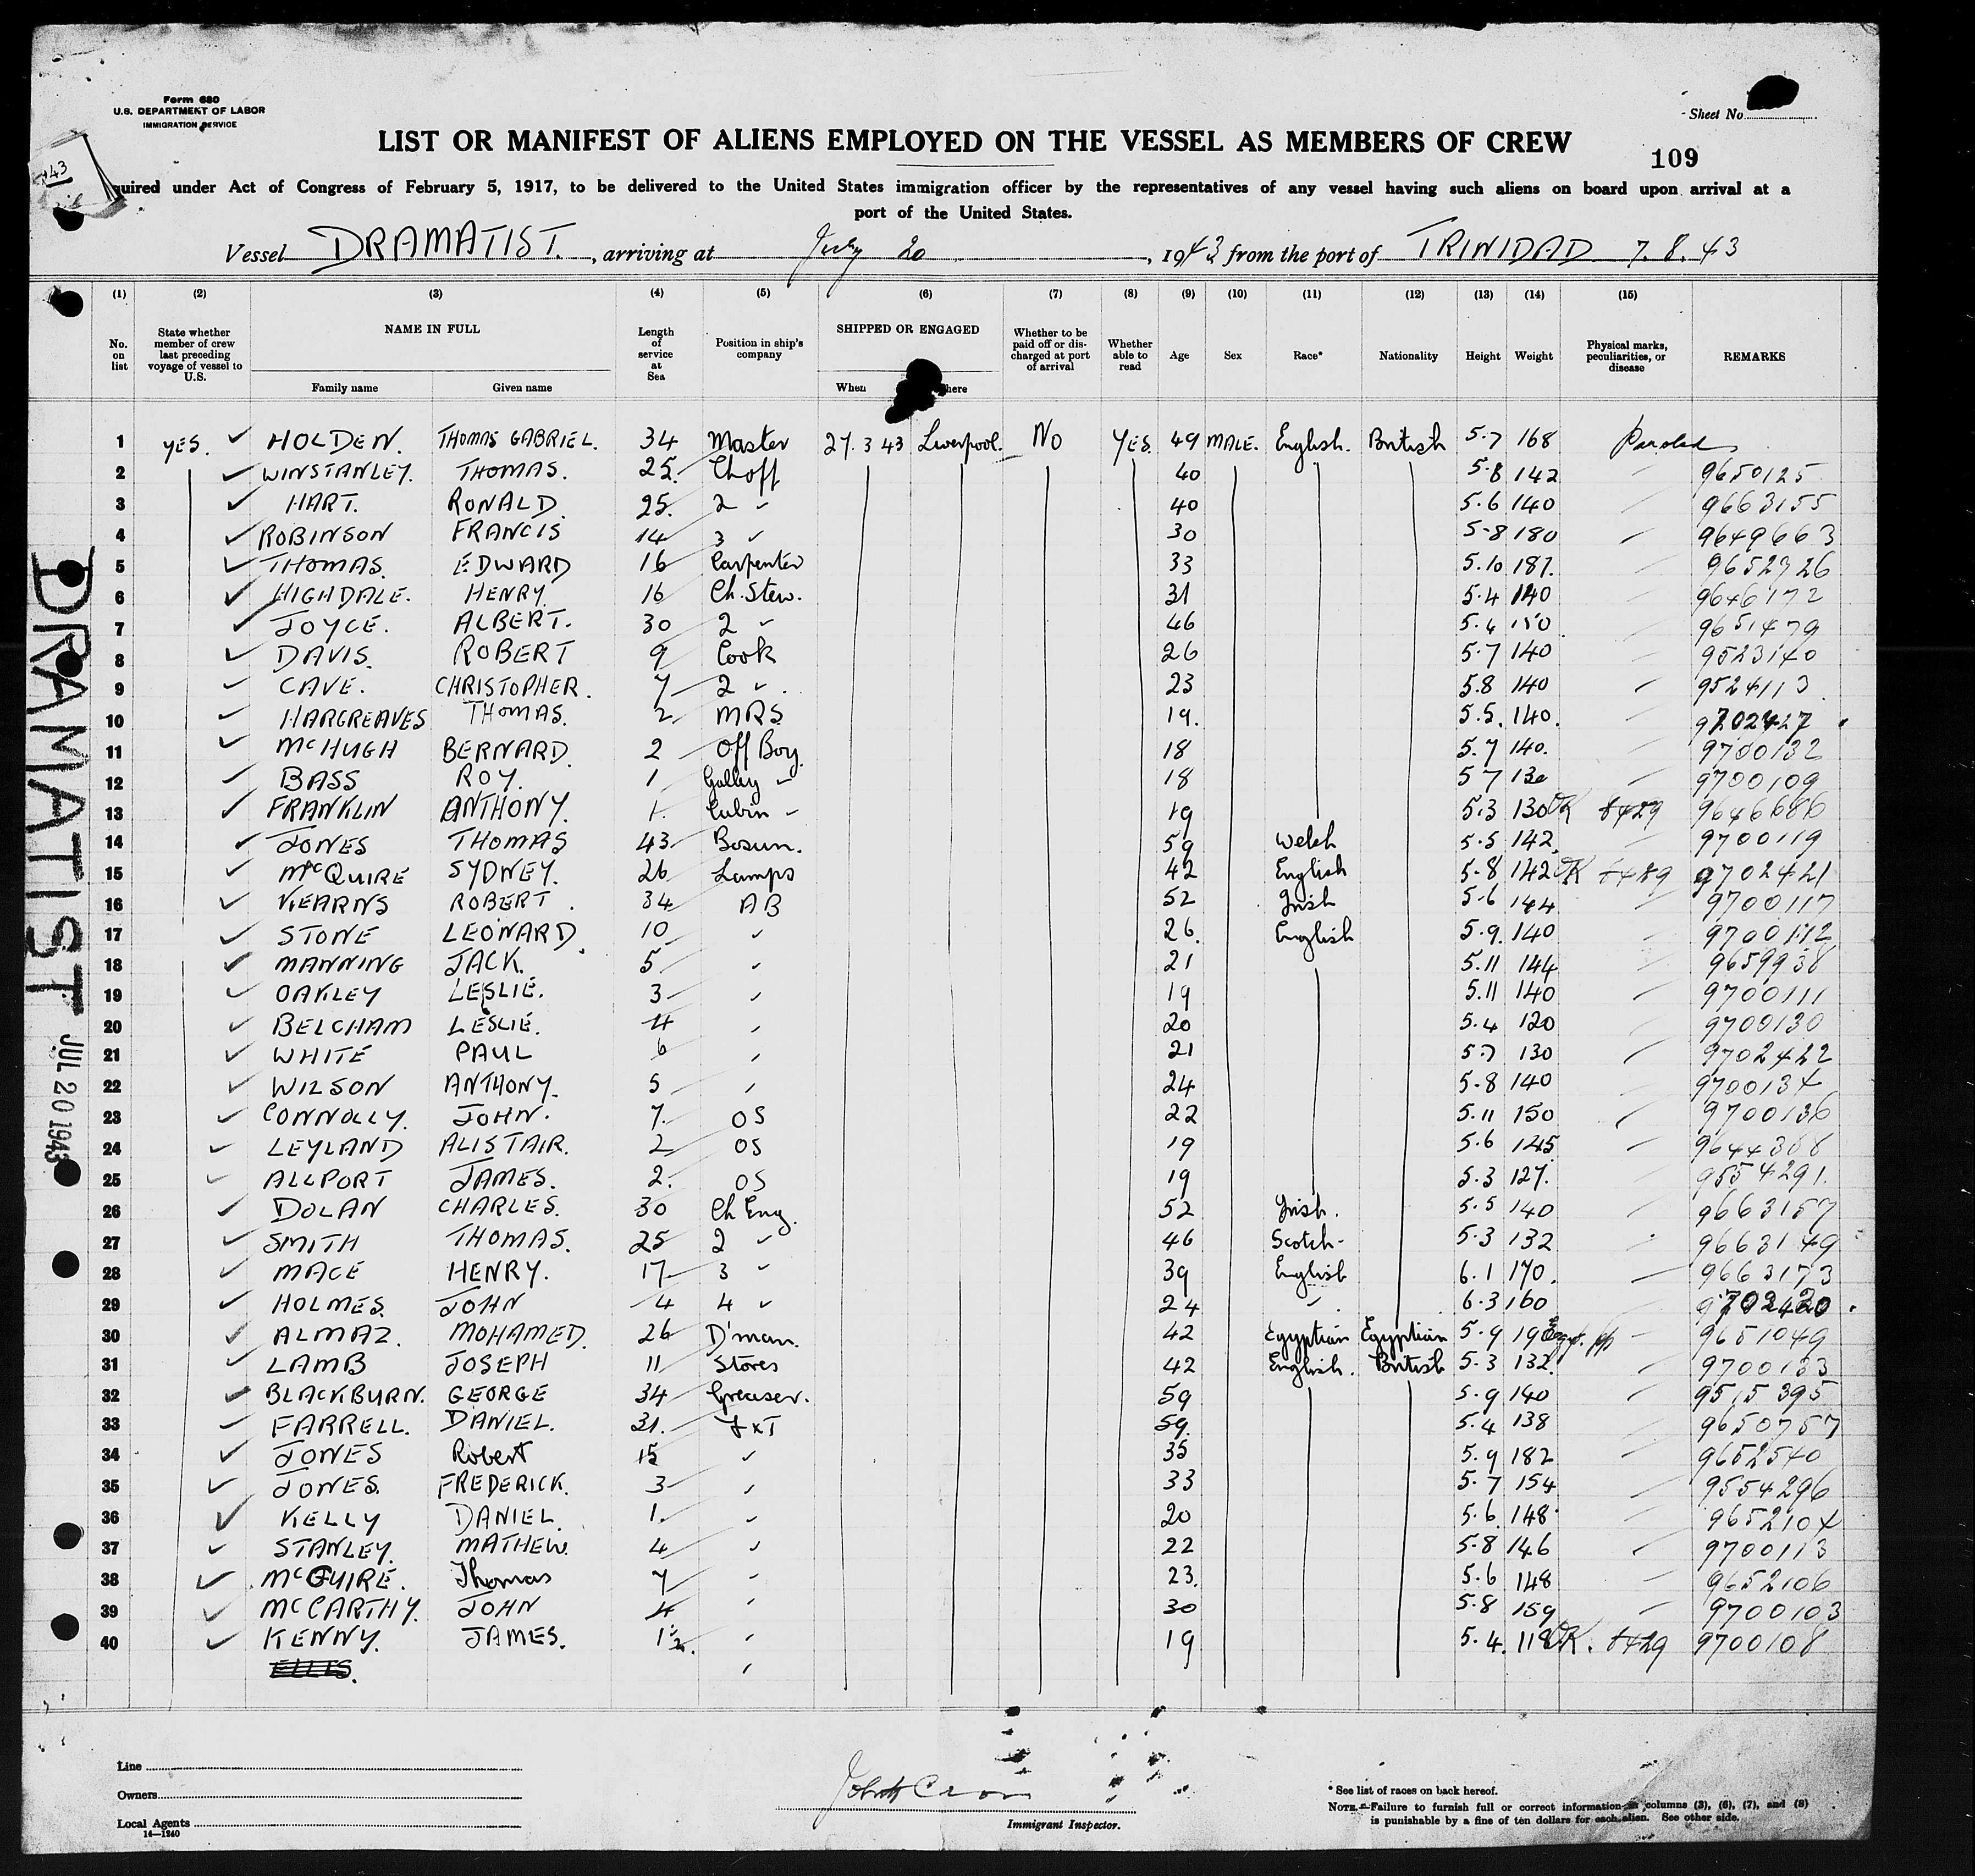 Form 680
U.S. DEPARTMENT OF LABOR
IMMIGRATION SERVICE
Sheet No
LIST OR MANIFEST OF ALIENS EMPLOYED ON THE VESSEL AS MEMBERS OF CREW
109
43
quired under Act of Congress of February 5, 1917, to be delivered to the United States immigration officer by the representatives of any vessel having such aliens on board upon arrival at a
port of the United States.
Vessel DRAMATIST. , arriving at July 20 , 1943 from the port of TRINIDAD 7.8.43
(1) (2) (3) (4) (5) (6) (7) (8) (9) (10) (11) (12) (13) (14) (15)
No. on list State whether member of crew last preceding voyage of vessel to U.S. NAME IN FULL Family name Given name Length of service at Sea Position in ship's company SHIPPED OR ENGAGED When here Whether to be paid off or discharged at port of arrival Whether able to read Age Sex Race* Nationality Height Weight Physical marks, peculiarities, or disease REMARKS
1 YES. ✓ HOLDEN. THOMAS GABRIEL. 34 Master 27.3 43 Liverpool. No YES. 49 MALE. English. British 5.7 168 Paroled
2 ✓ WINSTANLEY. THOMAS. 25. Ch off 40 5.8 142 9650125
3 ✓ HART. RONALD. 25. 2 ✓ 40 5.6 140 9663155
4 ✓ ROBINSON FRANCIS 14 3 ✓ 30 5-8 180 9649663
5 ✓ THOMAS. EDWARD 16 Carpenter 33 5.10 187. 9652926
6 ✓ HIGHDALE. HENRY. 16 Ch. Stew. 31 5.4 140 9646172
7 ✓ JOYCE. ALBERT. 30 2 ✓ 46 5.4 150 9651479
8 ✓ DAVIS. ROBERT 9 Cook 26 5.7 140 9523140
9 ✓ CAVE. CHRISTOPHER. 7 2 ✓ 23 5.8 140 9524113
10 ✓ HARGREAVES THOMAS. 2 MRS 19. 5.5. 140. 9702427
11 ✓ McHUGH BERNARD. 2 Off Boy. 18 5.7 140. 9700132
12 ✓ BASS ROY. 1 Galley ✓ 18 5 7 130 9700109
13 ✓ FRANKLIN ANTHONY. 1. Cabin ✓ 19 5.3 130 OK 8429 9646686
14 ✓ JONES THOMAS 43 Bosun. 59 Welch 5.5 142. 9700119
15 ✓ McQUIRE SYDNEY. 26 Lamps 42 English 5.8 142 OK 8489 9702421
16 ✓ KEARNS ROBERT. 34 AB 52 Irish 5.6 144 9700117
17 ✓ STONE LEONARD. 10 ✓ 26. English 5.9. 140 9700112
18 ✓ MANNING JACK. 5 ✓ 21 5.11 144 9659938
19 ✓ OAKLEY LESLIE. 3 ✓ 19 5.11 140 9700111
20 ✓ BELCHAM LESLIE. 4 ✓ 20 5.4 120 9700130
21 ✓ WHITE PAUL 6 ✓ 21 5.7 130 9702422
22 ✓ WILSON ANTHONY. 5 ✓ 24 5.8 140 9700134
23 ✓ CONNOLLY. JOHN. 7. OS 22 5.11 150 9700136
24 ✓ LEYLAND ALISTAIR. 2 OS 19 5.6 145 9644308
25 ✓ ALLPORT JAMES. 2. OS 19 5.3 127. 9554291.
26 ✓ DOLAN CHARLES. 30 Ch Eng. 52 Irish. 5.5 140 9663157
27 ✓ SMITH THOMAS. 25 2 ✓ 46 Scotch- 5.3 132 9663149
28 ✓ MACE HENRY. 17 3 ✓ 39 English 6.1 170. 9663173
29 ✓ HOLMES. JOHN 4 4 ✓ 24 " 6.3 160 9702420
30 ✓ ALMAZ. MOHAMED. 26 D'man. 42 Egyptian Egyptian 5.9 Egypt. pp 9651049
31 ✓ LAMB JOSEPH 11 Stores 42 English. British 5.3 132. 9700133
32 ✓ BLACKBURN. GEORGE 34 Greaser. 59 5.9 140 9515395
33 ✓ FARRELL. DANIEL. 31. F x T 59. 5.4 138 9650757
34 ✓ JONES Robert 15 ✓ 35 5.9 182 9652540
35 ✓ JONES. FREDERICK. 3 ✓ 33 5.7 154 9554296
36 ✓ KELLY DANIEL 1. ✓ 20 5.6. 148 9652104
37 ✓ STANLEY. MATHEW. 4 ✓ 22 5.8 146 9700113
38 ✓ McGUIRE. Thomas 7 ✓ 23. 5.6 148 9652106
39 ✓ McCARTHY. JOHN 4 ✓ 30 5.8 159 9700103
40 ✓ KENNY. JAMES. 1½. ✓ 19 5.4. 118 OK. 8429 9700108
ELLIS.
DRAMATIST
JUL 20 1943
Line
Owners
Local Agents
14—1240
Immigrant Inspector.
* See list of races on back hereof.
NOTE.—Failure to furnish full or correct information in columns (3), (6), (7), and (8)
is punishable by a fine of ten dollars for each alien. See other side.